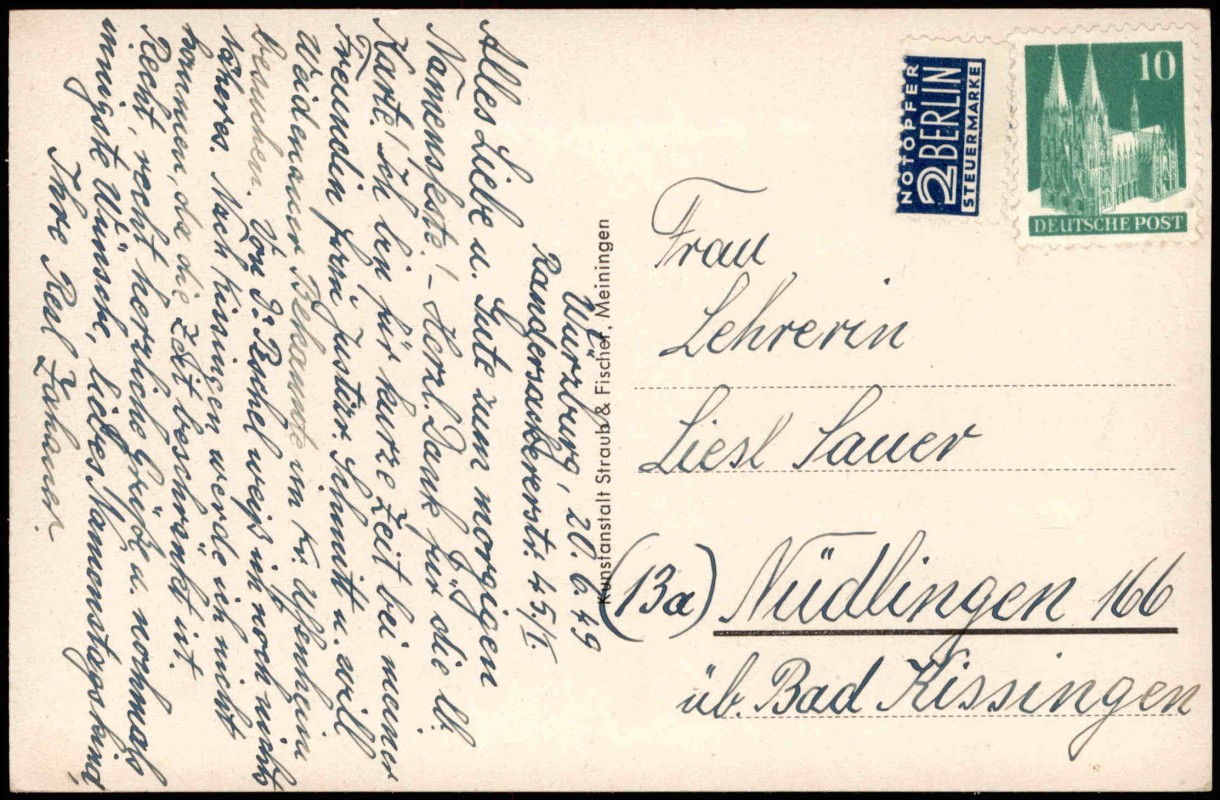 Würzburg, 20.6.49
Randersackererstr. 45/I.
Alles Liebe u. Gute zum morgigen
Namensfeste! – Herzl. Dank für die lb.
Karte! Ich bin für kurze Zeit bei meiner
Freundin Frau Justizrr. Schmitt u. will
Weidenauer Bekannte im Kr. Uffenheim
besuchen. Von Dr. Buchel weiß ich noch nichts
näheres. Nach Kissingen werde ich nicht
kommen, da die Zeit beschränkt ist.
Recht, recht herzliche Grüße u. nochmals
innigste Wünsche, liebes Namenstagskind
Ihre Resl
Kunstanstalt Straub & Fischer, Meiningen
NOTOPFER
2 BERLIN
STEUERMARKE
10
DEUTSCHE POST
Frau
Lehrerin
Liesl Sauer
(13a) Nüdlingen 166
üb. Bad Kissingen